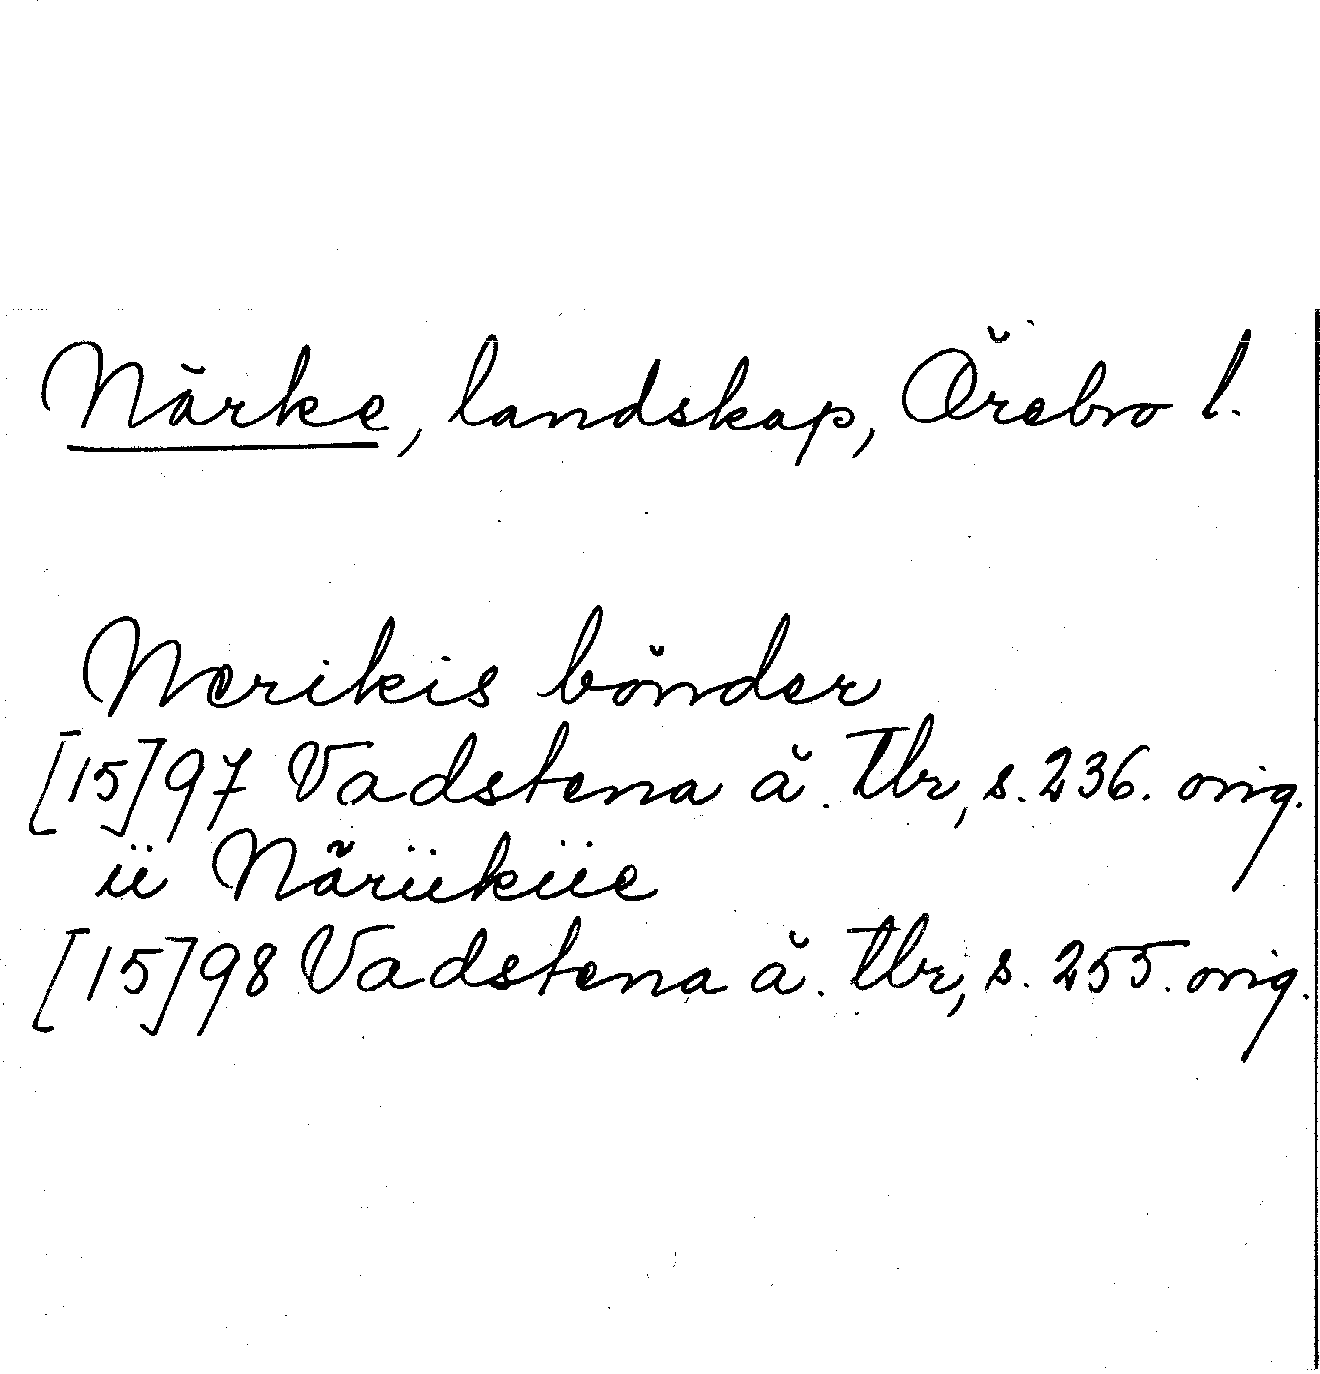 Närke, landskap, Örebro l.
Nerikis bönder
[15]97 Vadstena ä. Tbr, s. 236. orig.
ii Näriikiie
[15]98 Vadstena ä. Tbr, s. 255. orig.